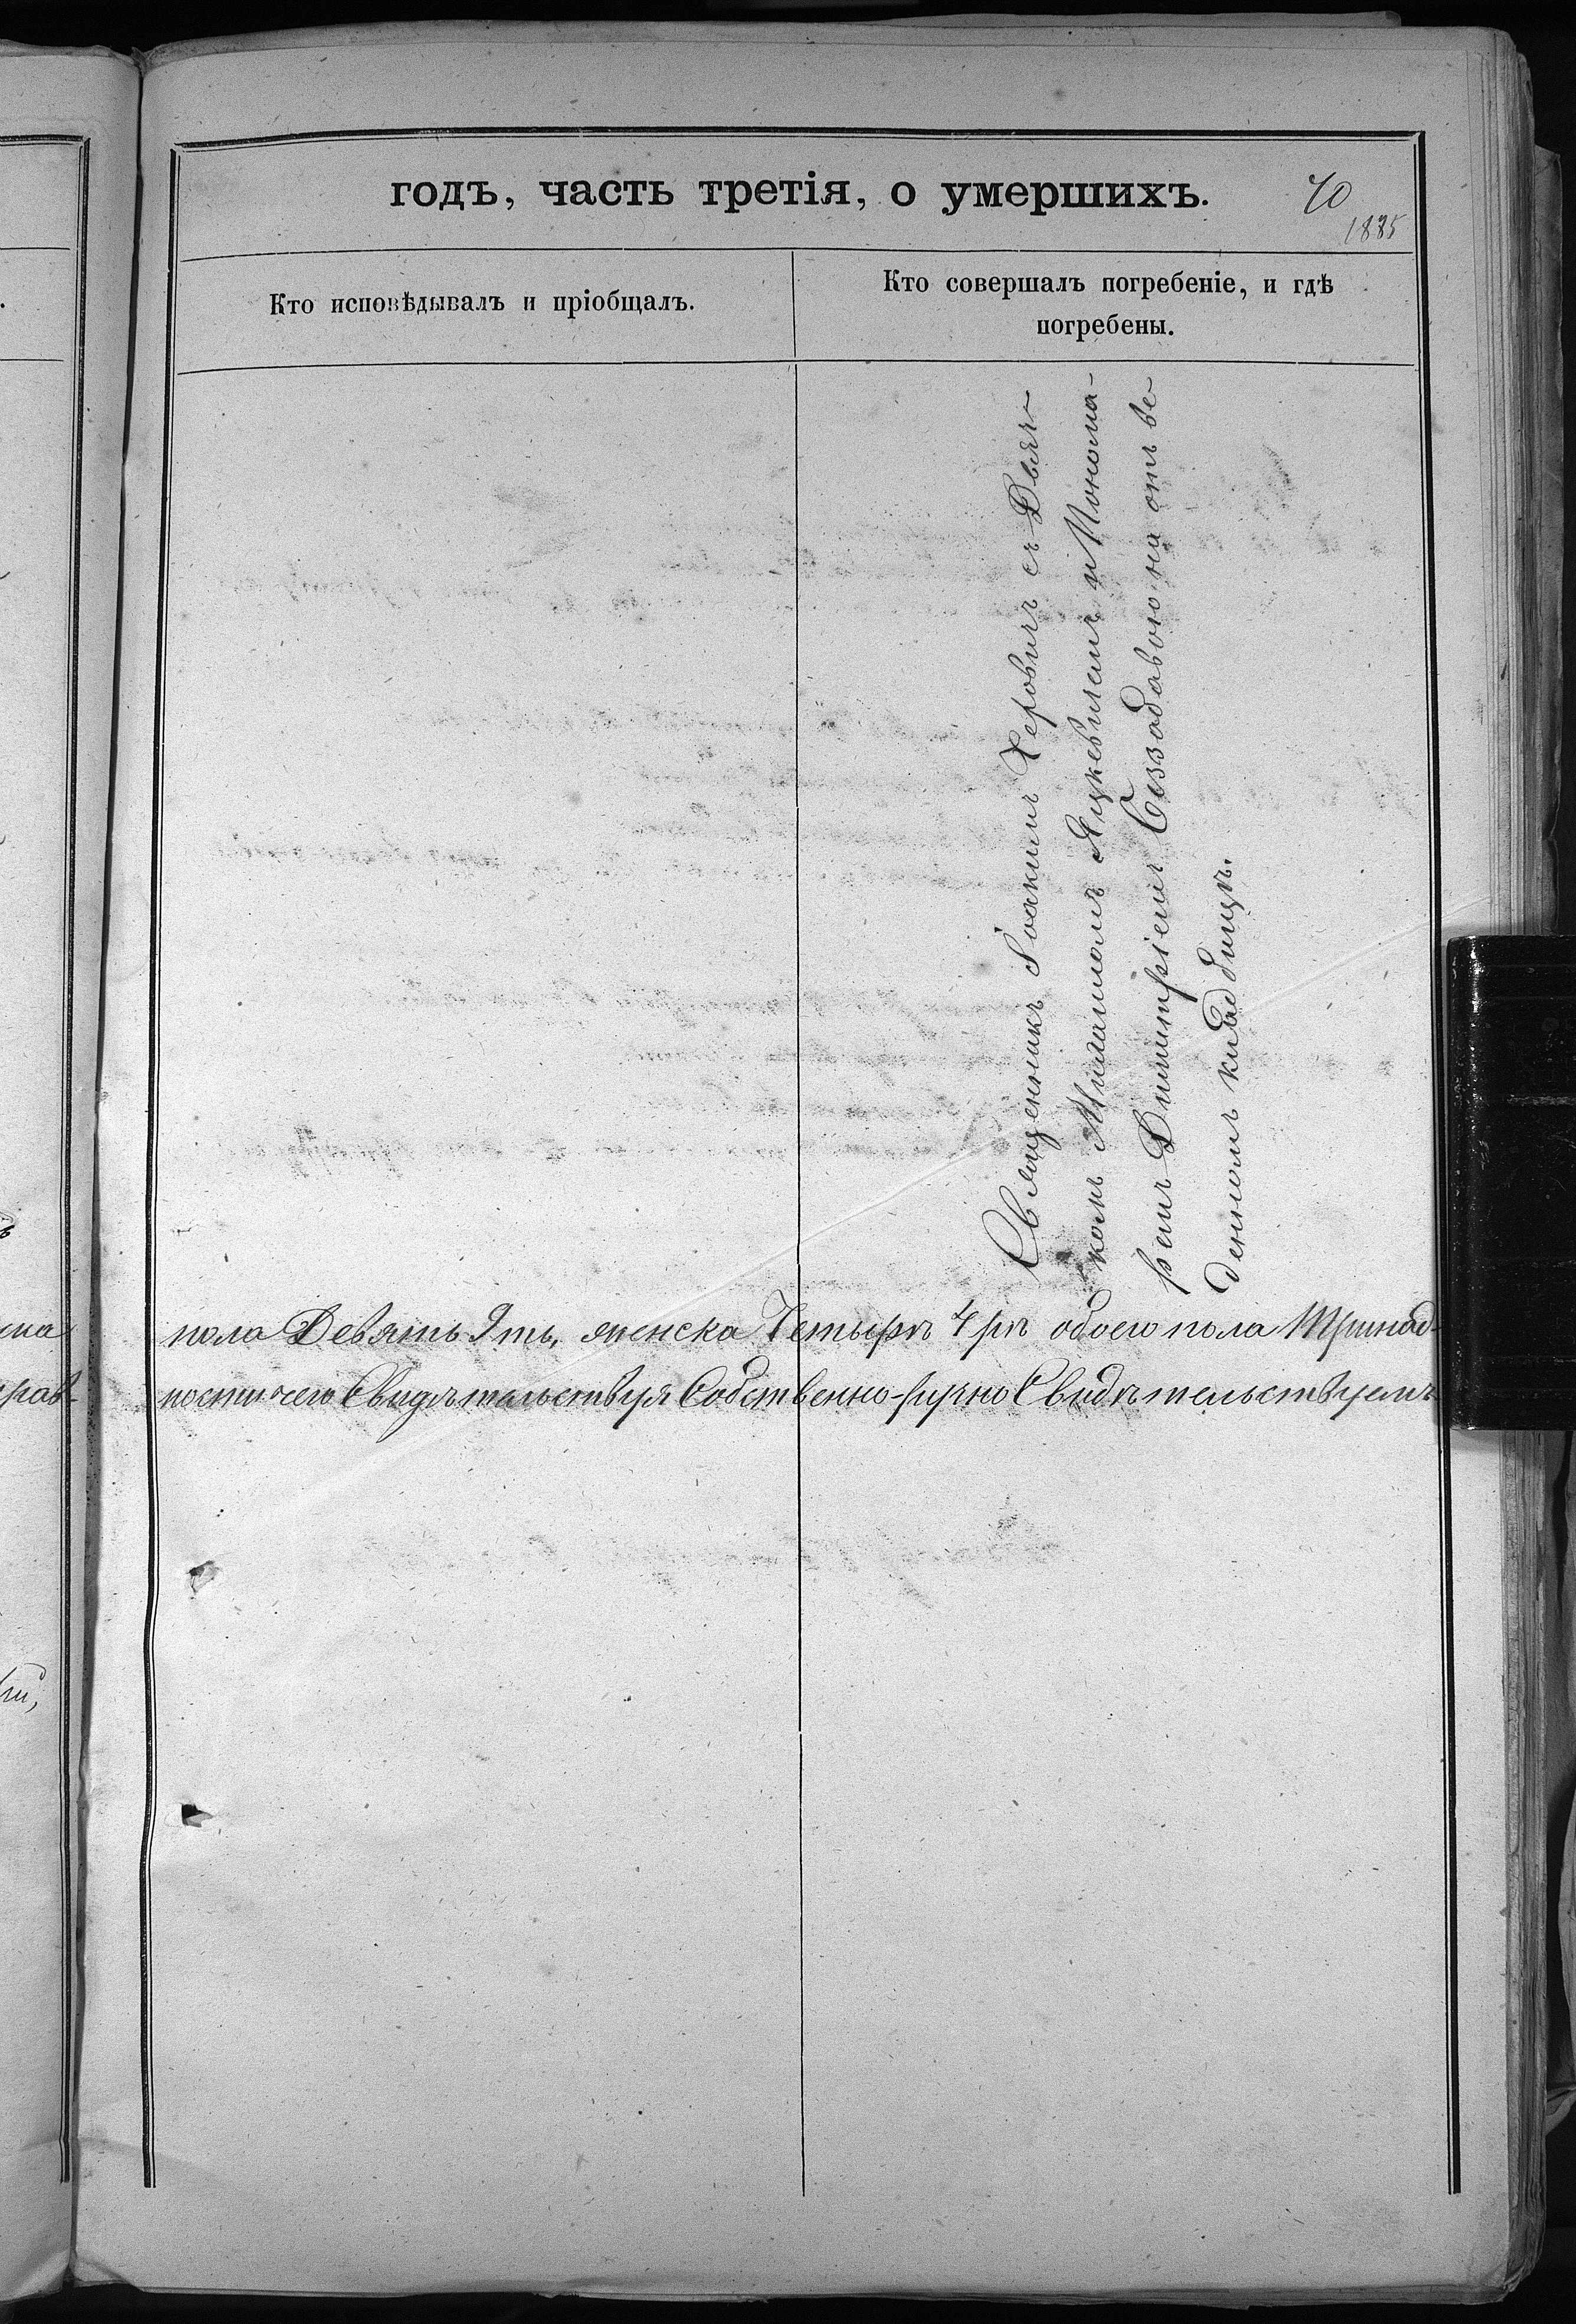 годъ, часть третія, о умершихъ.
70
1885
Кто исповѣдывалъ и пріобщалъ.
Кто совершалъ погребеніе, и гдѣ
погребены.
Священникъ Іоакимъ Херовичъ съ Дьяч-
комъ Яцкевичемъ и Понома-
ремъ Димитріемъ на отве-
денномъ кладбищѣ.
пола Девять 9ть, женска Четырѣ 4рѣ обоего пола Тринад-
ности чего Свидѣтельствуя Собственно-ручно Свидѣтельствуемъ